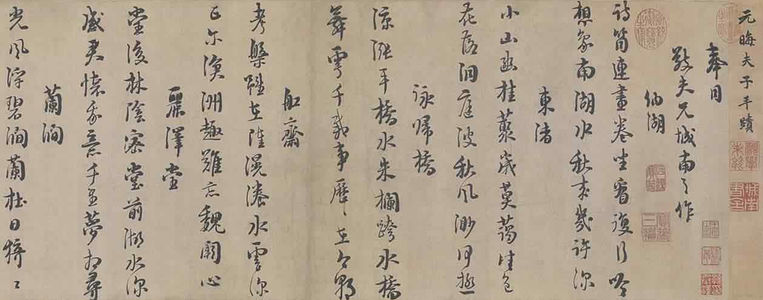 元晦夫子手蹟
奉同
敬夫兄城南之作
納湖
詩筒連畫卷坐看復行吟
想象南湖水秋來幾許深
東渚
小山幽桂叢歲莫藹佳色
花落洞庭波秋風渺何極
詠歸橋
漲平湖水朱欄跨小橋
舞雩千載事歷歷在今朝
船齋
考槃雖在陸滉瀁水雲深
正爾滄洲趣難忘魏闕心
麗澤堂
堂後林陰密堂前湖水深
感君懷我意千里夢相尋
蘭澗
光風浮碧澗蘭杜日猗猗